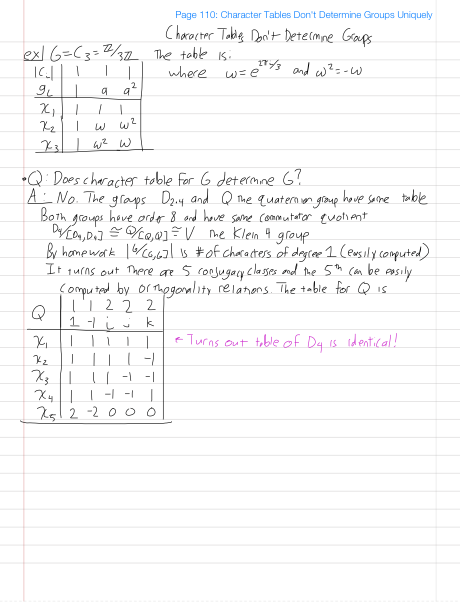 Page 110: Character Tables Don't Determine Groups Uniquely
Character Tables Don't Determine Groups
ex| G=C₃=ℤ/3ℤ The table is:
|C_i| 1 1 1 where ω=e^{2πi/3} and ω²=-ω
g_i 1 a a²
χ₁ 1 1 1
χ₂ 1 ω ω²
χ₃ 1 ω² ω
•Q: Does character table for G determine G?
A: No. The groups D₂.₄ and Q the quaternion group have same table
Both groups have order 8 and have same commutator quotient
D₄/[D₄,D₄] ≅ Q/[Q,Q] ≅ V the Klein 4 group
By homework |G/[G,G]| is # of characters of degree 1 (easily computed)
It turns out there are 5 conjugacy classes and the 5th can be easily
computed by orthogonality relations. The table for Q is
1 1 2 2 2
Q 1 -1 i j k
χ₁ 1 1 1 1 1 ← Turns out table of D₄ is identical!
χ₂ 1 1 1 1 -1
χ₃ 1 1 1 -1 -1
χ₄ 1 1 -1 -1 1
χ₅ 2 -2 0 0 0